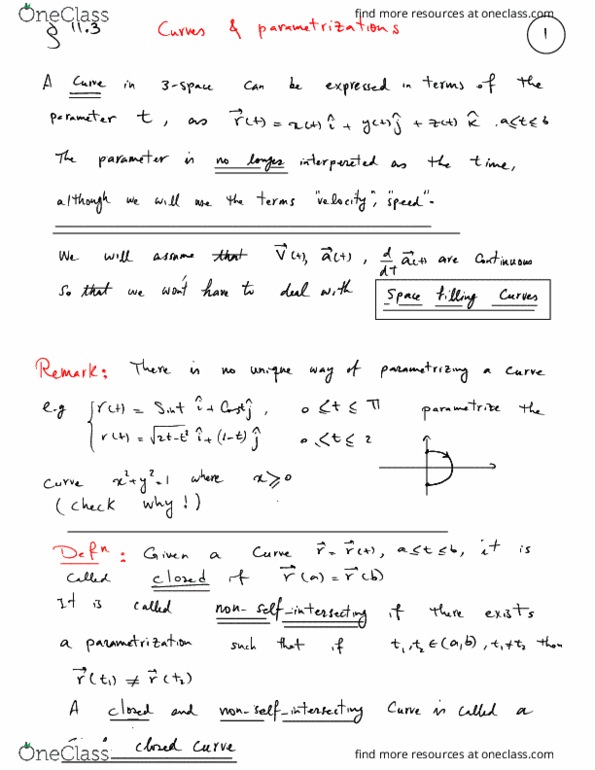 find more resources at oneclass.com
OneClass
§ 11.3 Curves & parametrizations 1
A Curve in 3-space can be expressed in terms of the
parameter t, as r⃗(t) = x(t) î + y(t) ĵ + z(t) k̂ . a≤t≤b
The parameter is no longer interpreted as the time,
although we will use the terms "velocity", "speed".
We will assume that V⃗(t), a⃗(t), d/dt a⃗(t) are Continuous
So that we won't have to deal with Space filling Curves
Remark: There is no unique way of parametrizing a curve
e.g { r(t) = Sint î + Cost ĵ, 0≤t≤π parametrize the
r(t) = √2t-t² î + (1-t) ĵ 0≤t≤2
Curve x²+y²=1 where x≥0
(check why!)
Defn: Given a Curve r⃗ = r⃗(t), a≤t≤b, it is
called closed if r⃗(a) = r⃗(b)
It is called non-self-intersecting if there exists
a parametrization such that if t₁,t₂∈(a,b), t₁≠t₂ then
r⃗(t₁) ≠ r⃗(t₂)
A closed and non-self-intersecting Curve is called a
closed curve
OneClass
find more resources at oneclass.com